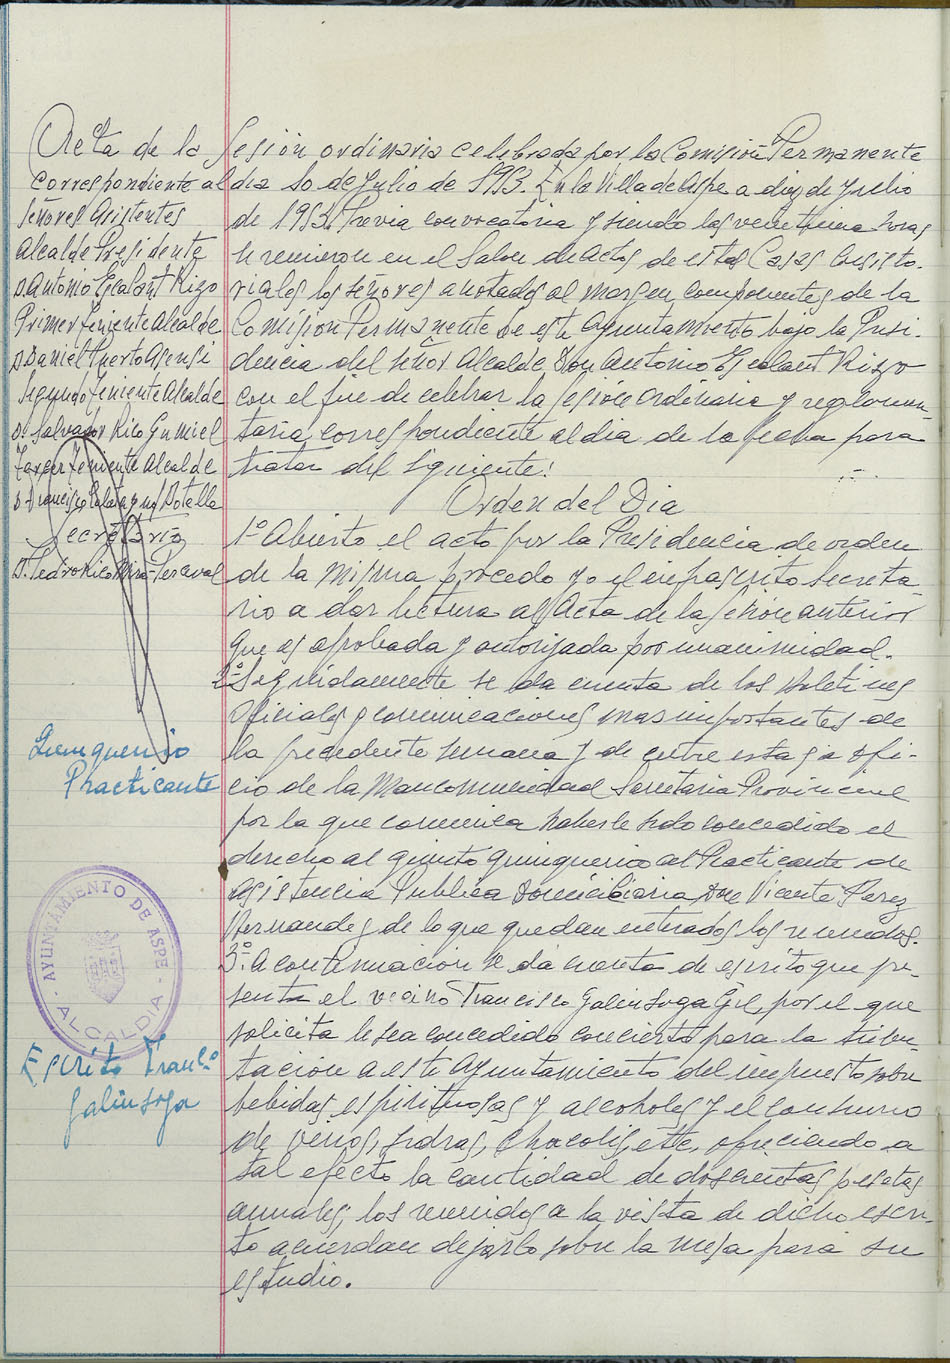 Acta de la Sesión ordinaria celebrada por la Comisión Permanente
correspondiente al dia 10 de Julio de 1953. En la Villa de Aspe a diez de Julio
Señores Asistentes
Alcalde Presidente
D. Antonio Escalant Rizo
Primer Teniente Alcalde
D. Daniel Puerto Asensi
Segundo Teniente Alcalde
D. Salvador Rico Gumiel
Tercer Teniente Alcalde
D. Francisco Calatayud Botella
Secretario
D. Pedro Rico Mira-Perceval
de 1953. Previa convocatoria y siendo las veintiuna horas
se reunieron en el Salon de Actos de estas Casas Consisto-
riales los señores anotados al margen componentes de la
Comisión Permanente de este Ayuntamiento bajo la Presi-
dencia del Señor Alcalde Don Antonio Escalant Rizo
con el fin de celebrar la sesión ordinaria y reglamen-
taria, correspondiente al dia de la fecha para
tratar del siguiente:
Orden del Dia
1º Abierto el acto por la Presidencia de orden
de la misma procedo yo el infrascrito Secreta-
rio a dar lectura al Acta de la Sesión anterior
que es aprobada y autorizada por unanimidad.
2º Seguidamente se da cuenta de los Boletines
Oficiales y comunicaciones mas importantes de
la precedente semana y de entre estas a ofi-
cio de la Mancomunidad Sanitaria Provincial
por la que comunica haberle sido concedido el
derecho al quinto quinquenio al Practicante de
Asistencia Publica Domiciliaria Don Vicente Perez
Hernandez de lo que quedan enterados los reunidos.
Quinquenio
Practicante
AYUNTAMIENTO DE ASPE
- ALCALDIA -
3º A continuacion se da cuenta de escrito que pre-
senta el vecino Francisco Galinsoga Gil, por el que
solicita le sea concedido concierto para la tribu-
tacion a este Ayuntamiento del impuesto sobre
bebidas espirituosas y alcoholes y el consumo
de vinos, sidras, chacolis, etc, ofreciendo a
tal efecto la cantidad de doscientas pesetas
anuales, los reunidos a la vista de dicho escri-
to acuerdan dejarlo sobre la mesa para su
estudio.
Escrito Francº
Galinsoga